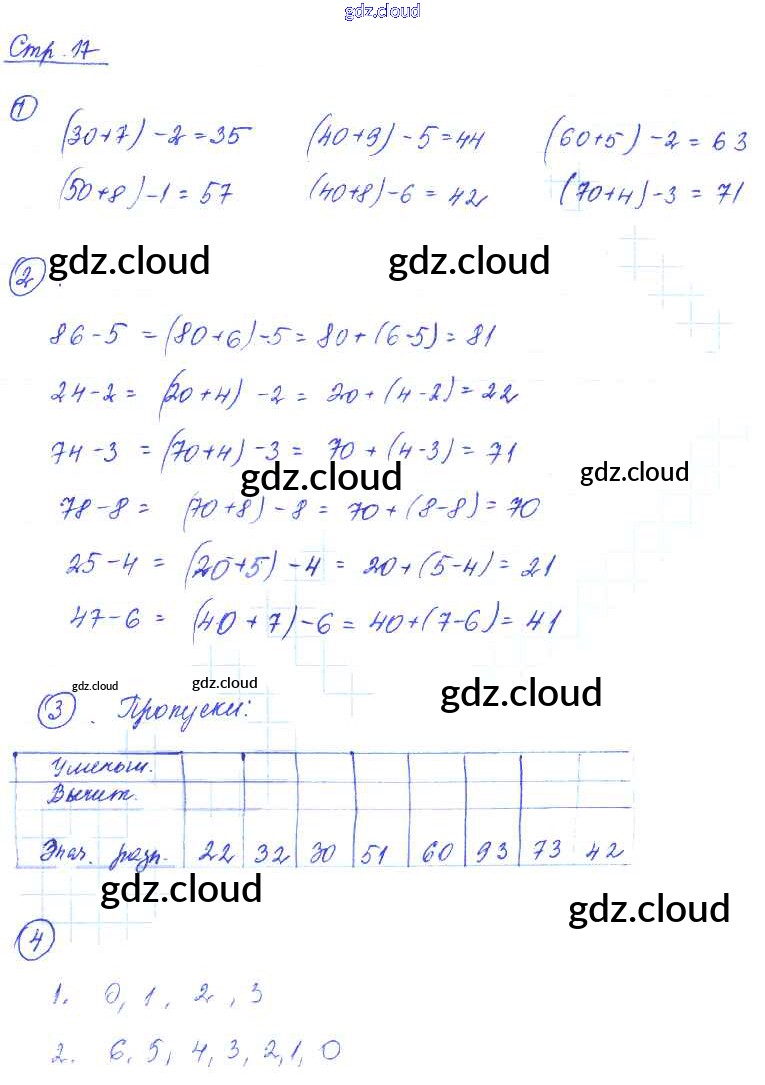 gdz.cloud
Стр. 17
1
(30+7) - 2 = 35 (40+9) - 5 = 44 (60+5) - 2 = 63
(50+8) - 1 = 57 (40+8) - 6 = 42 (70+4) - 3 = 71
gdz.cloud gdz.cloud
2.
86 - 5 = (80+6) - 5 = 80 + (6-5) = 81
24 - 2 = (20+4) - 2 = 20 + (4-2) = 22
74 - 3 = (70+4) - 3 = 70 + (4-3) = 71
gdz.cloud gdz.cloud
78 - 8 = (70+8) - 8 = 70 + (8-8) = 70
25 - 4 = (20+5) - 4 = 20 + (5-4) = 21
47 - 6 = (40+7) - 6 = 40 + (7-6) = 41
gdz.cloud gdz.cloud gdz.cloud
3. Пропуски:
Уменьш.
Вычит.
Знач. разн. 22 32 30 51 60 93 73 42
gdz.cloud gdz.cloud
4
1. 0, 1, 2, 3
2. 6, 5, 4, 3, 2, 1, 0